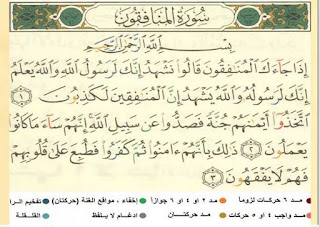 سُورَةُ المُنَافِقُونَ
بِسْمِ اللَّهِ الرَّحْمَٰنِ الرَّحِيمِ
إِذَا جَآءَكَ ٱلْمُنَٰفِقُونَ قَالُوا۟ نَشْهَدُ إِنَّكَ لَرَسُولُ ٱللَّهِ وَٱللَّهُ يَعْلَمُ
إِنَّكَ لَرَسُولُهُۥ وَٱللَّهُ يَشْهَدُ إِنَّ ٱلْمُنَٰفِقِينَ لَكَٰذِبُونَ ١
ٱتَّخَذُوٓا۟ أَيْمَٰنَهُمْ جُنَّةً فَصَدُّوا۟ عَن سَبِيلِ ٱللَّهِ إِنَّهُمْ سَآءَ مَا كَانُوا۟
يَعْمَلُونَ ٢ ذَٰلِكَ بِأَنَّهُمْ ءَامَنُوا۟ ثُمَّ كَفَرُوا۟ فَطُبِعَ عَلَىٰ قُلُوبِهِمْ
فَهُمْ لَا يَفْقَهُونَ ٣
مد ٦ حركات لزوما مد ٢ او ٤ او ٦ جوازا إخفاء ، مواقع الغنة (حركتان) تفخيم الرا
مد واجب ٤ او ٥ حركات مد حركتان ادغام لا يلفظ القلقلة